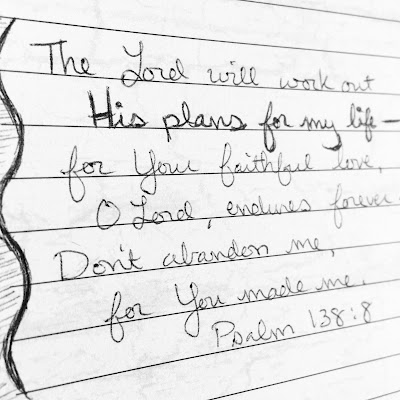 The Lord will work out
His plans for my life —
for Your faithful love,
O Lord, endures forever.
Don't abandon me,
for You made me.
Psalm 138:8